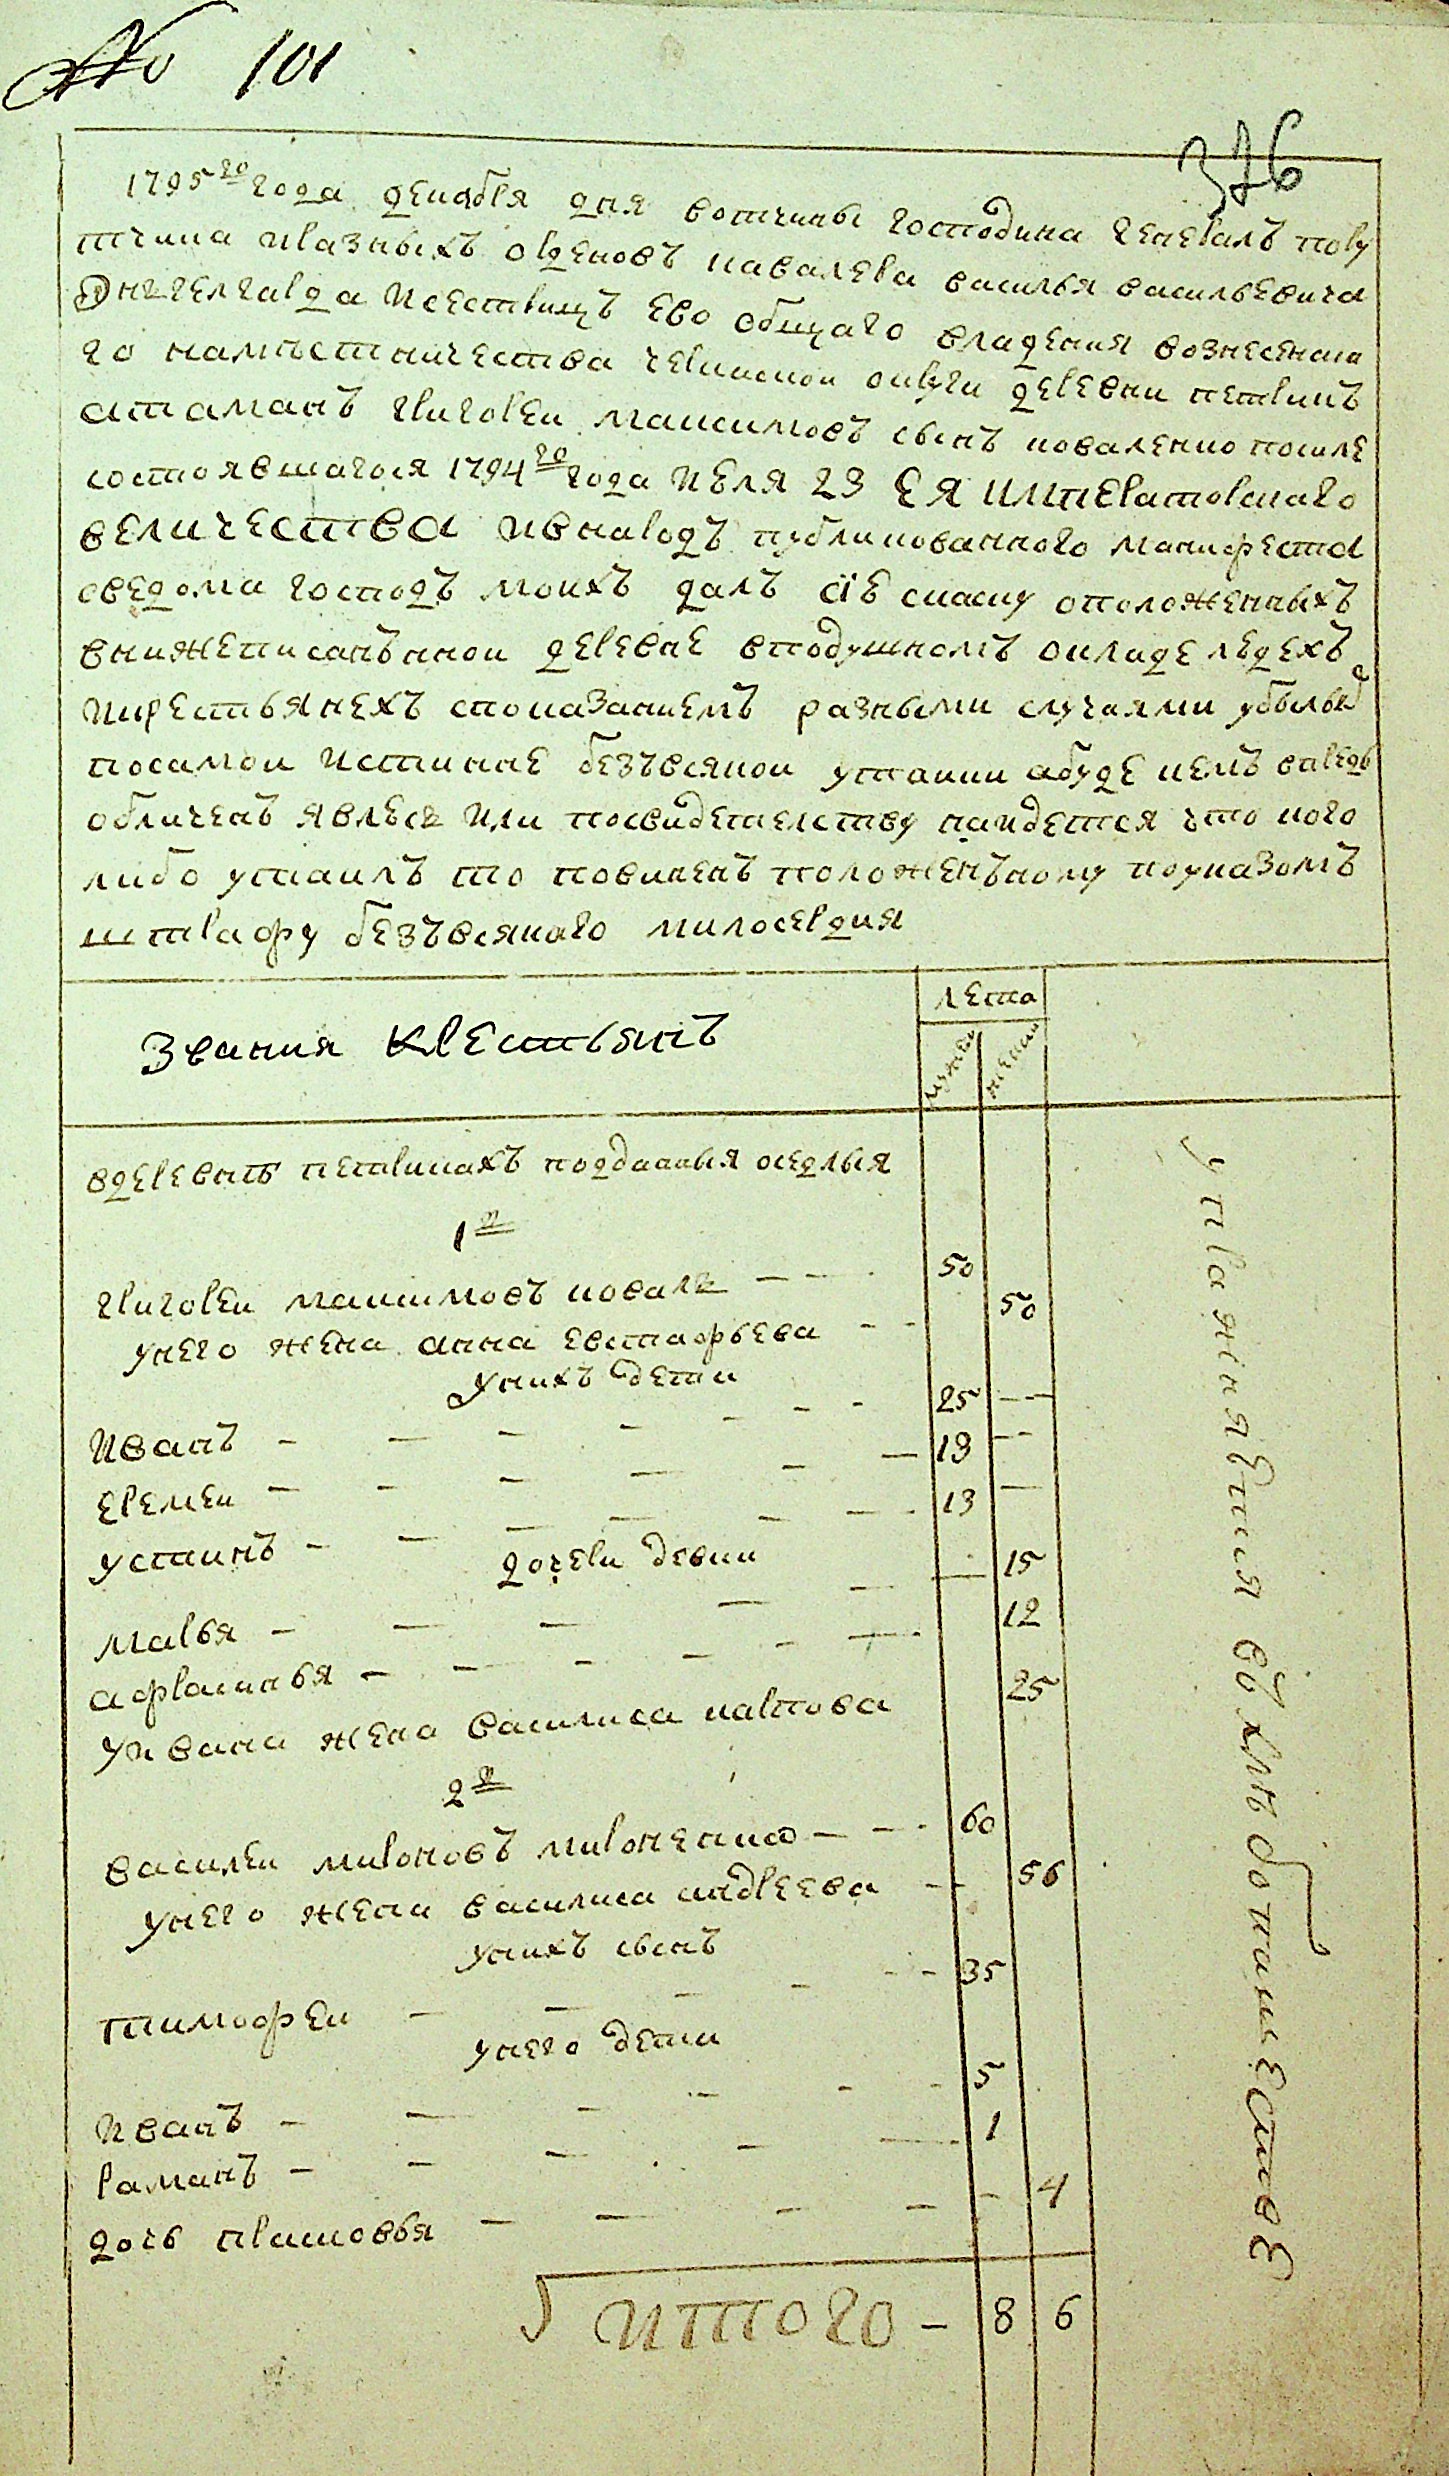 № 101
376
1795го года декабря дня вотчины господина генералъ пору
тчика и разныхъ орденовъ кавалера василья васильевича
Энгелгарда и сестрицъ ево общаго владения вознесенска
го наместничества черкаской округи деревни петрикъ
атаманъ григореи максимовъ сынъ коваленко после
состоявшагося 1794го года июля 23 ЕЯ императорскаго
величества и внародъ публикованного манифеста
сведома господъ моихъ далъ сiе скаску оположенныхъ
внижеписанънои деревне вподушномъ окладе людехъ
икрестьянехъ споказанiемъ разными случаями убылыхъ
посамои истинне безъвсякои утаики абуде кемъ впредь
обличенъ явлюсь или посвидетелству наидется что кого
либо утаилъ то повиненъ положенъному поуказомъ
штрафу безъвсякаго милосердия
Звания крестьянъ
лета
мужск
женск
вдеревнъ петрикахъ подданныя оседлыя
1я
григореи максимовъ коваль 50
унего жена анна евстафьева 50
унихъ дети
иванъ 25
еремеи 19
устинъ 13
дочери девки
марья 15
афросинья 12
уивана жена василиса карпова 25
2я
василеи мироновъ мироненко 60
унего жена василиса андреева 56
унихъ сынъ
тимофеи 35
унего дети
иванъ 5
раманъ 1
дочь прасковья 4
итого 8 6
упражняются въ хлебопашестве